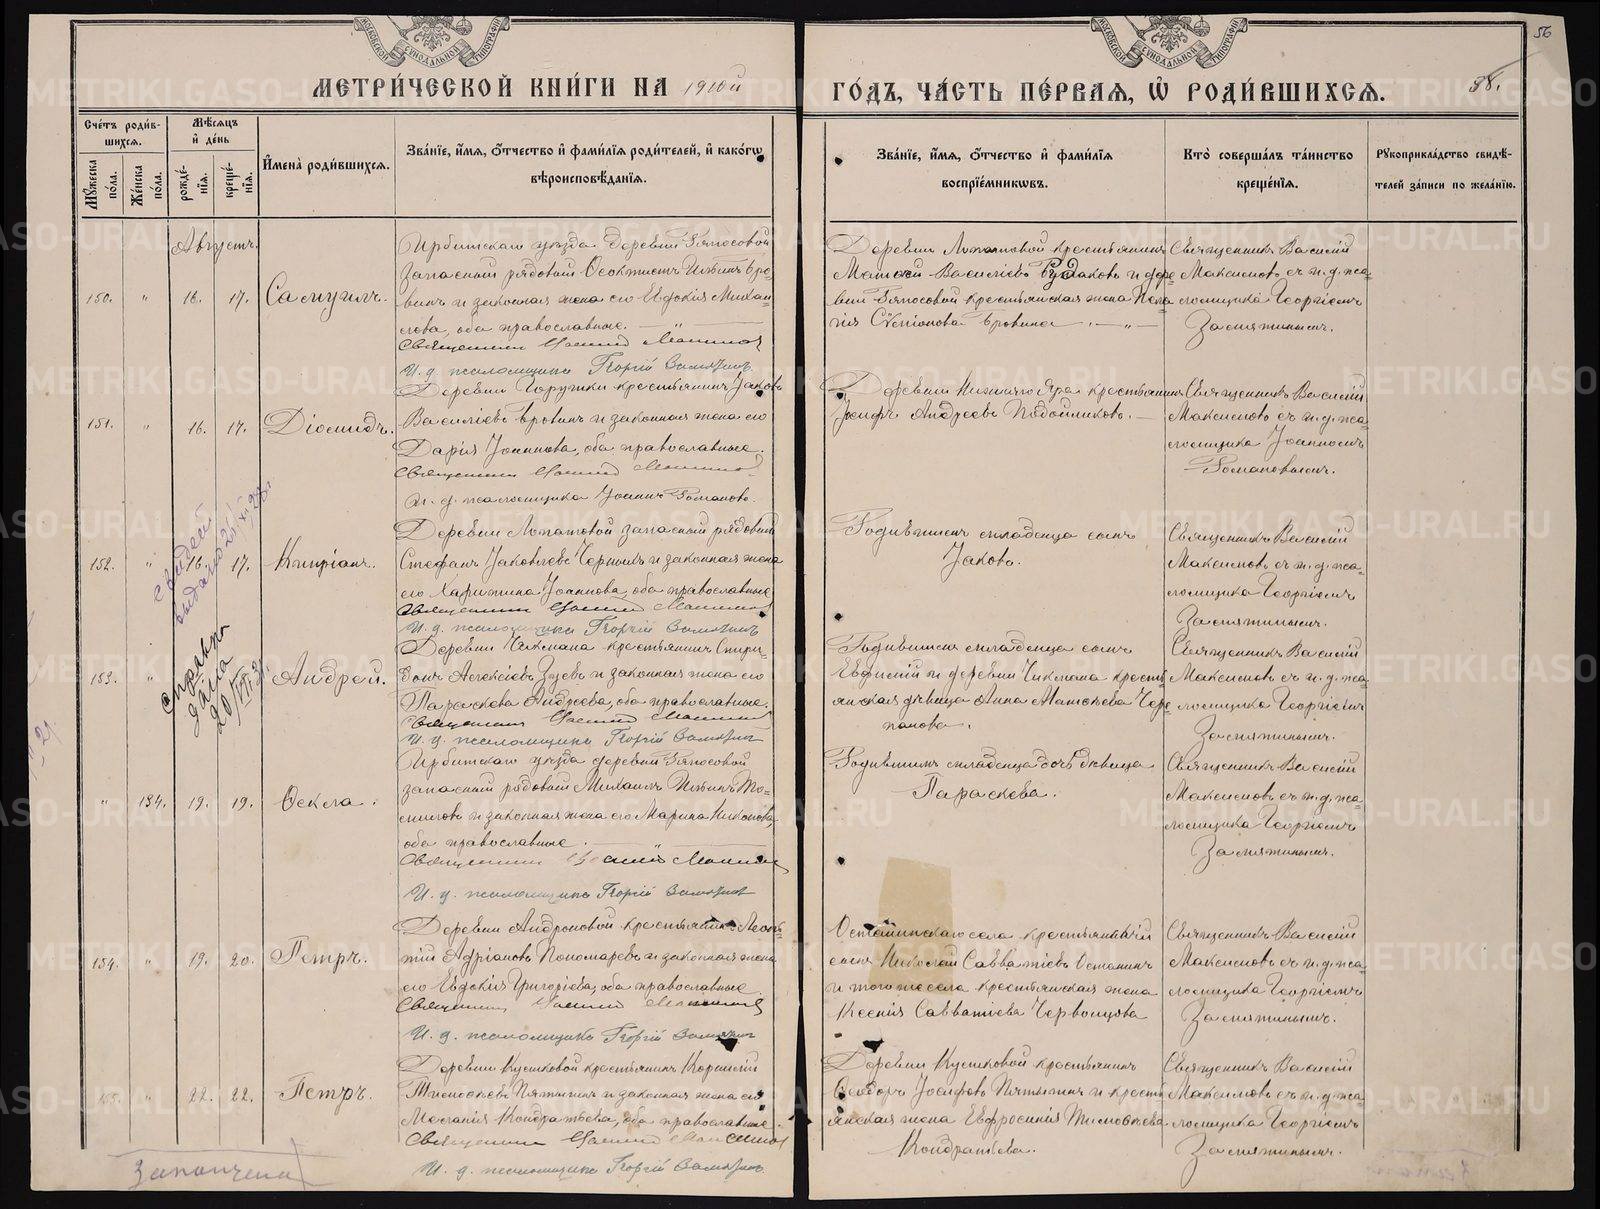 МОСКОВСКОЙ СѴНОДАЛЬНОЙ ТИПОГРАФІИ
МОСКОВСКОЙ СѴНОДАЛЬНОЙ ТИПОГРАФІИ
56
МЕТРИ́ЧЕСКОЙ КНИ́ГИ НА 1910й
ГО́ДЪ, ЧА́СТЬ ПЕ́РВАѦ, Ѡ҆ РОДИ́ВШИХСѦ.
98.
Сче́тъ роди́в-
шихсѧ.
Мꙋ́жеска по́ла.
Же́нска по́ла.
Мѣ́сѧцъ
и҆ де́нь
рожде́-
нїѧ.
креще́-
нїѧ.
И҆мена̀ роди́вшихсѧ.
Зва́нїе, и҆́мѧ, ѻ҆́тчество и҆ фами́лїѧ роди́телей, и҆ како́гѡ
вѣроисповѣ́данїѧ.
Зва́нїе, и҆́мѧ, ѻ҆́тчество и҆ фами́лїѧ
воспрїе́мниковъ.
Кто̀ соверша́лъ та́инство
креще́нїѧ.
Рꙋкоприкла́дство свидѣ́-
телей за́писи по жела́нїю.
Августъ.
150.
"
16.
17.
Самуилъ.
Ирбитскаго уѣзда деревни Ряпосовой
запасный рядовый Ѳеоктистъ Ильинъ Бро-
винъ и законная жена его Евдокія Михаи-
лова, оба православные.
Священникъ Василій Максимовъ
И. д. псаломщика Георгій Замятинъ
Деревни Лопатовой крестьянинъ
Матѳей Василіевъ Рудаковъ и дере-
вни Ряпосовой крестьянская жена Пела-
гія Бровина
Священникъ Василій
Максимовъ съ и. д. пса-
ломщика Георгіемъ
Замятинымъ.
151.
"
16.
17.
Діомидъ.
Деревни Горушки крестьянинъ Іаковъ
Василіевъ Бровинъ и законная жена его
Дарія Іоаннова, оба православные.
Священникъ Василій Максимовъ
И. д. псаломщика Іоаннъ Романовъ.
Деревни Нижняго Яра крестьянинъ
Іосифъ Андреевъ Подойниковъ.
Священникъ Василій
Максимовъ съ и. д. пса-
ломщика Іоанномъ
Романовымъ.
152.
"
16.
17.
Кипріанъ.
Деревни Лопатовой запасный рядовый
Стефанъ Іаковлевъ Черныхъ и законная жена
его Харитина Іоаннова, оба православные
Священникъ Василій Максимовъ
И. д. псаломщика Георгій Замятинъ
Родившагося младенца сынъ
Іаковъ.
Священникъ Василій
Максимовъ съ и. д. пса-
ломщика Георгіемъ
Замятинымъ.
153.
"
справка
дана
Андрей.
Деревни Чикмана крестьянинъ Спири-
донъ Алексіевъ Зуевъ и законная жена его
Параскева Андреева, оба православные.
Священникъ Василій Максимовъ
И. д. псаломщика Георгій Замятинъ
Родившагося младенца сынъ
Евфимій и деревни Чикмана кресть-
янская дѣвица Анна Матѳеева Чере-
панова.
Священникъ Василій
Максимовъ съ и. д. пса-
ломщика Георгіемъ
Замятинымъ.
"
134.
19.
19.
Ѳекла.
Ирбитскаго уѣзда деревни Ряпосовой
запасный рядовый Михаилъ Ильинъ То-
миловъ и законная жена его Марина Никонова,
оба православные.
Священникъ Василій Максимовъ
И. д. псаломщика Георгій Замятинъ
Родившагося младенца дочь дѣвица
Параскева.
Священникъ Василій
Максимовъ съ и. д. пса-
ломщика Георгіемъ
Замятинымъ.
154.
"
19.
20.
Петръ.
Деревни Андроновой крестьянинъ Леон-
тій Адріановъ Пономаревъ и законная жена
его Евдокія Григоріева, оба православные.
Священникъ Василій Максимовъ
И. д. псаломщика Георгій Замятинъ
Останинскаго села крестьянскій
сынъ Николай Савватіевъ Останинъ
и того же села крестьянская жена
Ксенія Савватіева Червонцова
Священникъ Василій
Максимовъ съ и. д. пса-
ломщика Георгіемъ
Замятинымъ.
155.
"
22.
22.
Петръ.
Деревни Кушковой крестьянинъ Корнилій
Тимоѳеевъ Пятыгинъ и законная жена его
Меланія Кондратьева, оба православные.
Священникъ Василій Максимовъ
И. д. псаломщика Георгій Замятинъ.
Деревни Кушковой крестьянинъ
Ѳеодоръ Іосифовъ Пятыгинъ и кресть-
янская жена Евфросинія Тимоѳеева
Кондратьева.
Священникъ Василій
Максимовъ съ и. д. пса-
ломщика Георгіемъ
Замятинымъ.
Закончена
METRIKI.GASO-URAL.RU